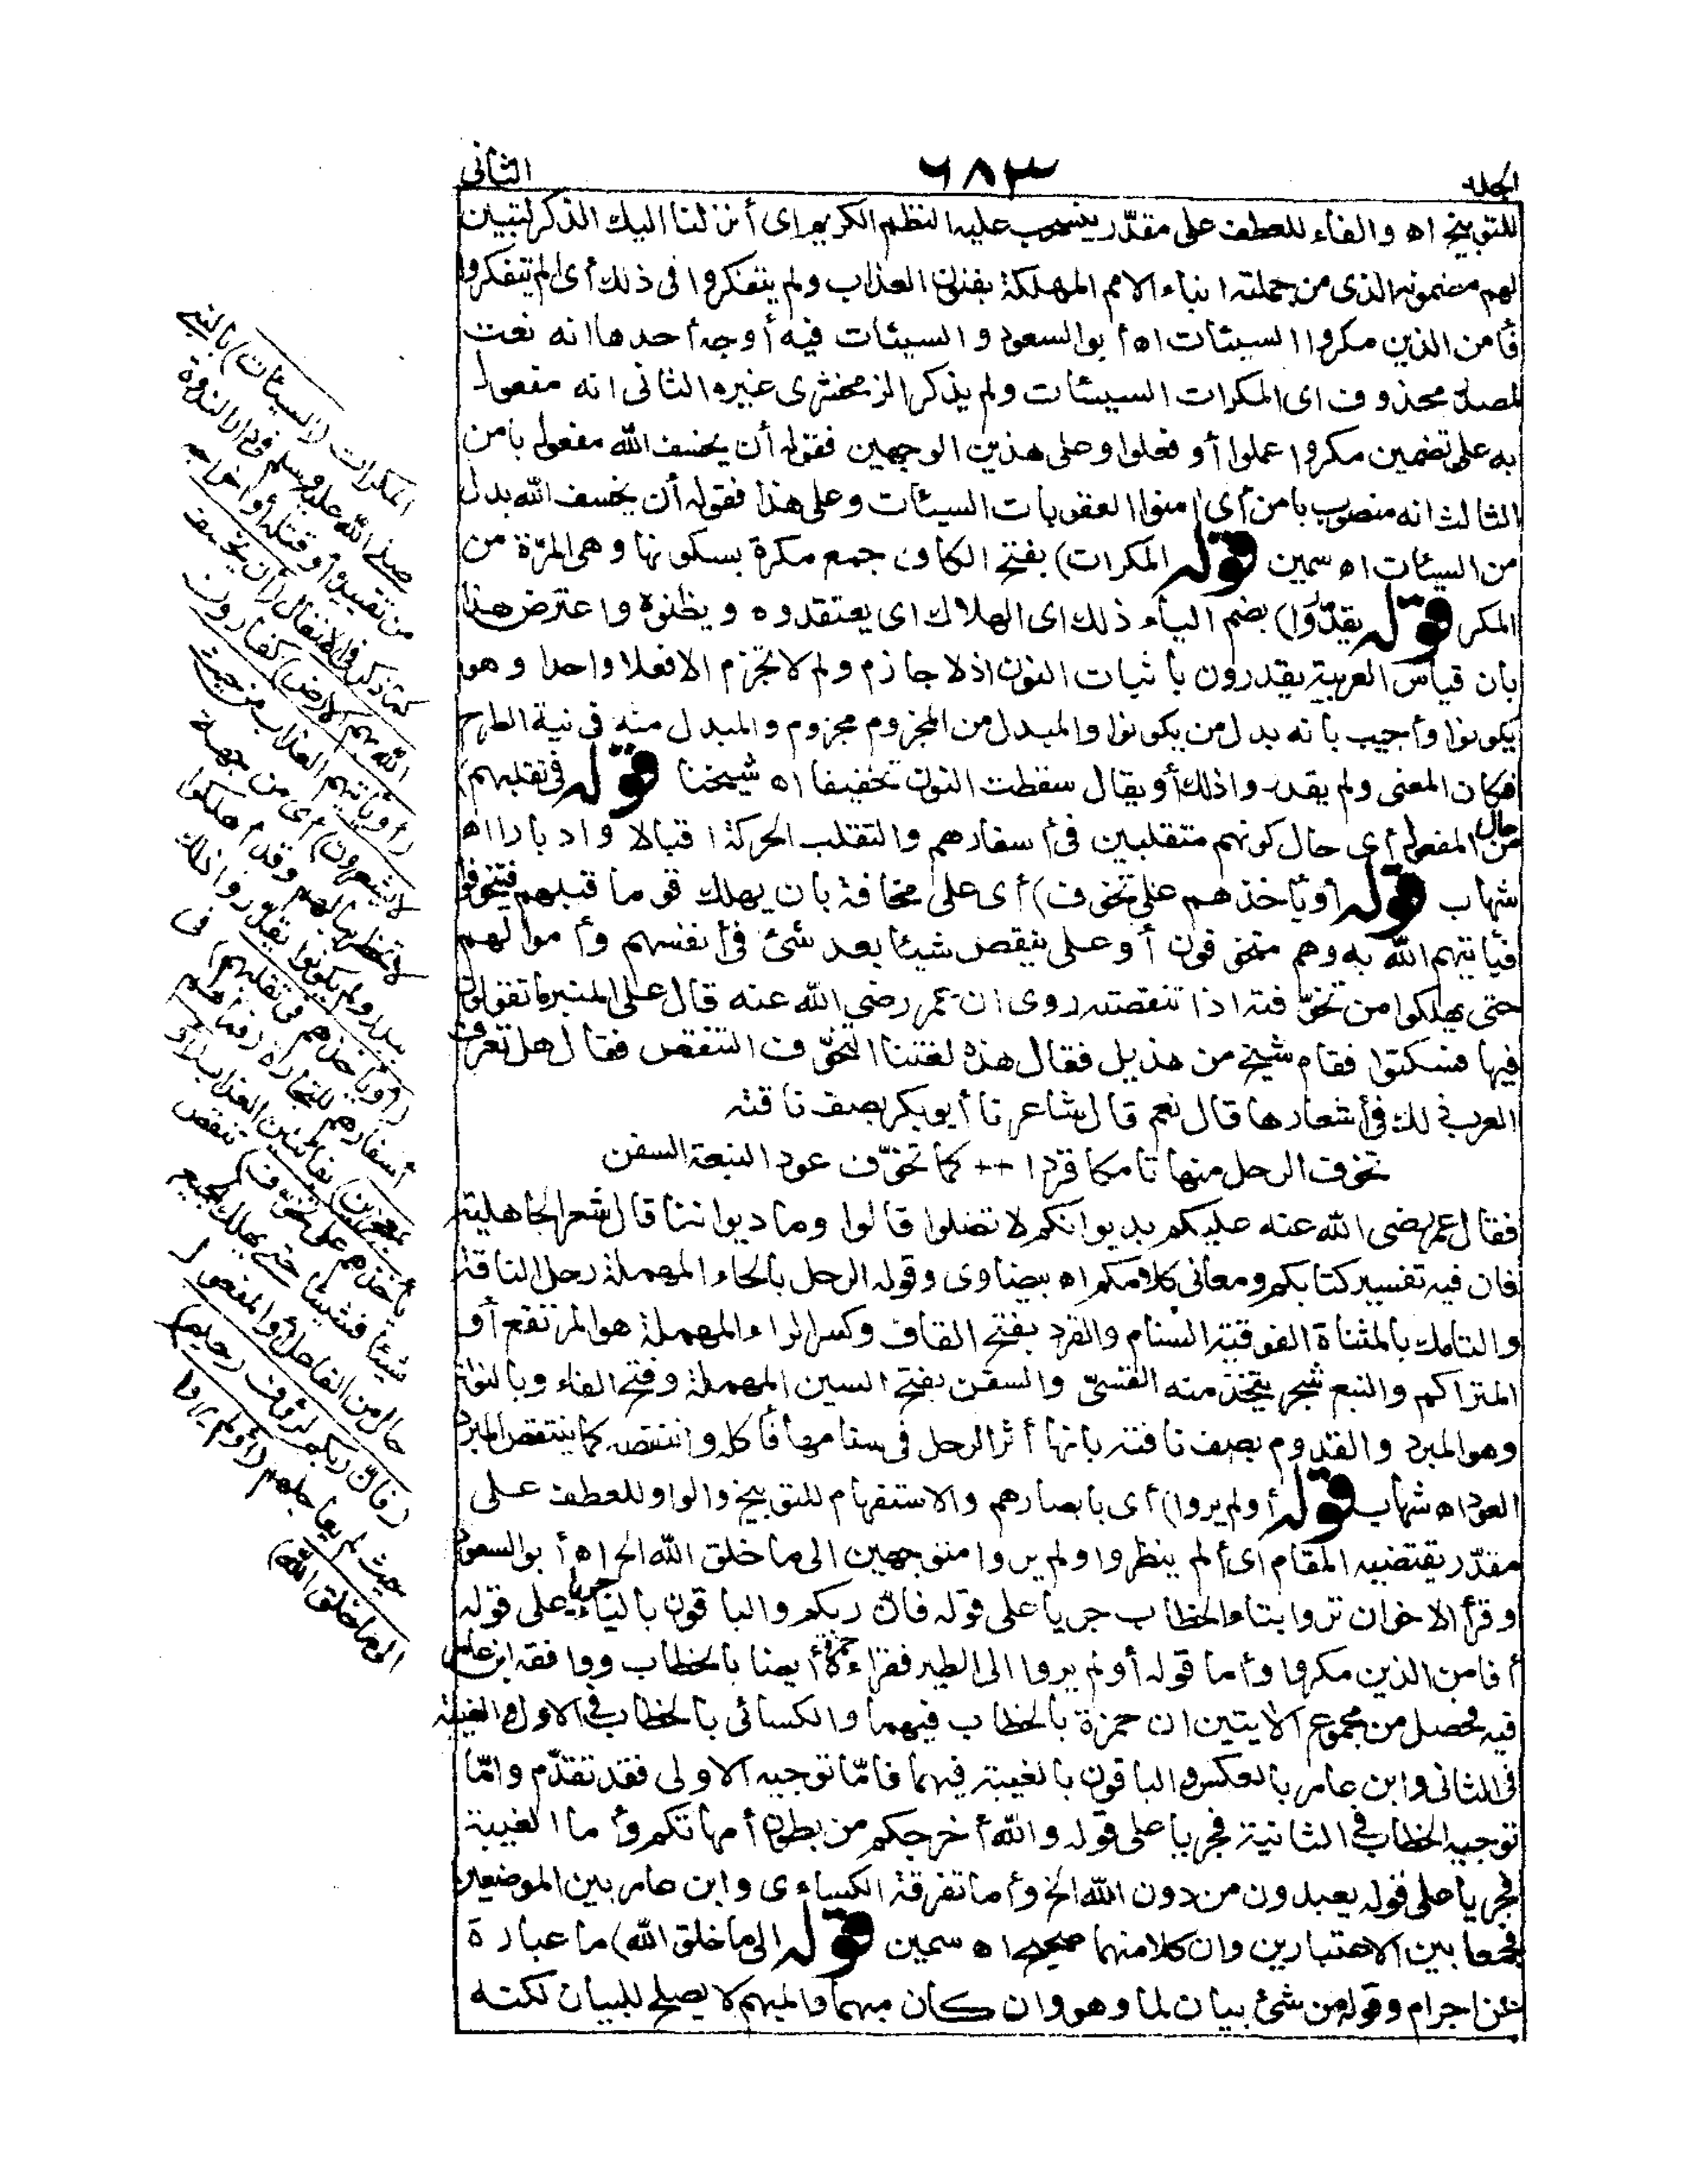 الجلد ٦٨٣ الثانى
للتوبيخ اه والفاء للعطف على مقدّر ينسحب عليه النظم الكريم اى أنزلنا اليك الذكر لتبين
لهم مضمونه الذى من جملته انباء الامم المهلكة بفنون العذاب ولم يتفكروا فى ذلك أى ألم يتفكروا
فأمن الذين مكروا السيئات اه أبو السعود والسيئات فيه أوجه أحدها انه نعت
لمصدر محذوف اى المكرات السيئات ولم يذكر الزمخشرى غيره الثانى انه مفعول
به على تضمين مكروا عملوا أو فعلوا وعلى هذين الوجهين فقوله أن يخسف الله مفعول بامن
الثالث انه منصوب بامن أى امنوا العقوبات السيئات وعلى هذا فقوله أن يخسف الله بدل
من السيئات اه سمين قوله المكرات) بفتح الكاف جمع مكرة بسكونها وهى المرّة من
المكر قوله يقدّروا) بضم الياء ذلك اى الهلاك اى يعتقدوه ويظنوه واعترض هذا
بان قياس العربية يقدرون باثبات النون اذلا جازم ولم لا تجزم الا فعلا واحدا وهو
يكونوا وأجيب بأنه بدل من يكونوا والمبدل من المجزوم مجزوم والمبدل منه فى نية الطرح
فكان المعنى ولم يقدروا ذلك أو يقال سقطت النون تخفيفا اه شيخنا قوله فى تقلبهم)
حال من المفعول أى حال كونهم متقلبين فى أسفارهم والتقلب الحركة اقبالا وادبارا اه
شهاب قوله أو يأخذهم على تخوف) أى على مخافة بان يهلك قوما قبلهم فيتخوفوا
فيأتيهم الله به وهم متخوفون أو على ينقص شيئا بعد شئ فى أنفسهم وأموالهم
حتى يهلكوا من تخوّفته اذا تنقصته روى ان عمر رضى الله عنه قال على المنبر ما تقولون
فيها فسكتوا فقام شيخ من هذيل فقال هذه لغتنا التخوّف التنقص فقال هل تعرف
العرب ذلك فى أشعارها قال نعم قال شاعرنا أبو بكر يصف ناقته
تخوف الرحل منها تامكا قردا ++ كما تخوّف عود النبعة السفن
فقال عمر رضى الله عنه عليكم بديوانكم لا تضلوا قالوا وما ديواننا قال شعر الجاهلية
فان فيه تفسير كتابكم ومعانى كلامكم اه بيضاوى وقوله الرحل بالحاء المهملة رحل الناقة
والتامك بالمثناة الفوقية السنام والقرد بفتح القاف وكسر الراء المهملة هو المرتفع أو
المتراكم والنبع شجر يتخذ منه القسىّ والسفن بفتح السين المهملة وفتح الفاء وبالنون
وهو المبرد والقدوم يصف ناقته بانها أثر الرحل فى سنامها فأكله وانتقصه كما ينتقص المبرد
العود اه شهاب قوله أولم يروا) أى بابصارهم والاستفهام للتوبيخ والواو للعطف على
مقدّر يقتضيه المقام اى ألم ينظروا ولم يروا متوجهين الى ما خلق الله الخ اه أبو السعود
وقرأ الاخوان تروا بتاء الخطاب جريا على قوله فان ربكم والباقون بالياء جريا على قوله
أفامن الذين مكروا وأما قوله أولم يروا الى الطير فقراءة حمزة أيضا بالخطاب ووافقه ابن عامر
فيه فحصل من مجموع الايتين ان حمزة بالخطاب فيهما والكسائى بالخطاب فى الاول والغيبة
فى الثانى وابن عامر بالعكس والباقون بالغيبة فيهما فامّا توجيه الاولى فقد تقدّم وامّا
توجيه الخطاب فى الثانية فجريا على قوله والله أخرجكم من بطون أمهاتكم وأما الغيبة
فجريا على قوله يعبدون من دون الله الخ وأما تفرقة الكساءى وابن عامر بين الموضعين
فجمعا بين الاعتبارين وان كلا منهما صحيح اه سمين قوله الى ما خلق الله) ما عبارة
عن اجرام وقوله من شئ بيان لما وهو وان كان مبهما والمبهم لا يصلح للبيان لكنه
المكرات (السيئات) بالنبى
صلى الله عليه وسلم فى دار الندوة
من تقييده أو قتله أو اخراجه
كما ذكر فى الانفال (أن يخسف
الله بهم الارض) كقارون
(أو يأتيهم العذاب من حيث
لا يشعرون) أى من جهة
لا تخطر ببالهم وقد أهلكوا
ببدر ولم يكونوا يقدروا ذلك
(أو يأخذهم فى تقلبهم) فى
أسفارهم للتجارة (فما هم
بمعجزين) بفائتين العذاب (أو
يأخذهم على تخوّف) تنقص
شيئا فشيئا حتى يهلك الجميع
حال من الفاعل أو المفعول
(فانّ ربكم لرؤف رحيم)
حيث لم يعاجلهم (أولم يروا
الى ما خلق الله)